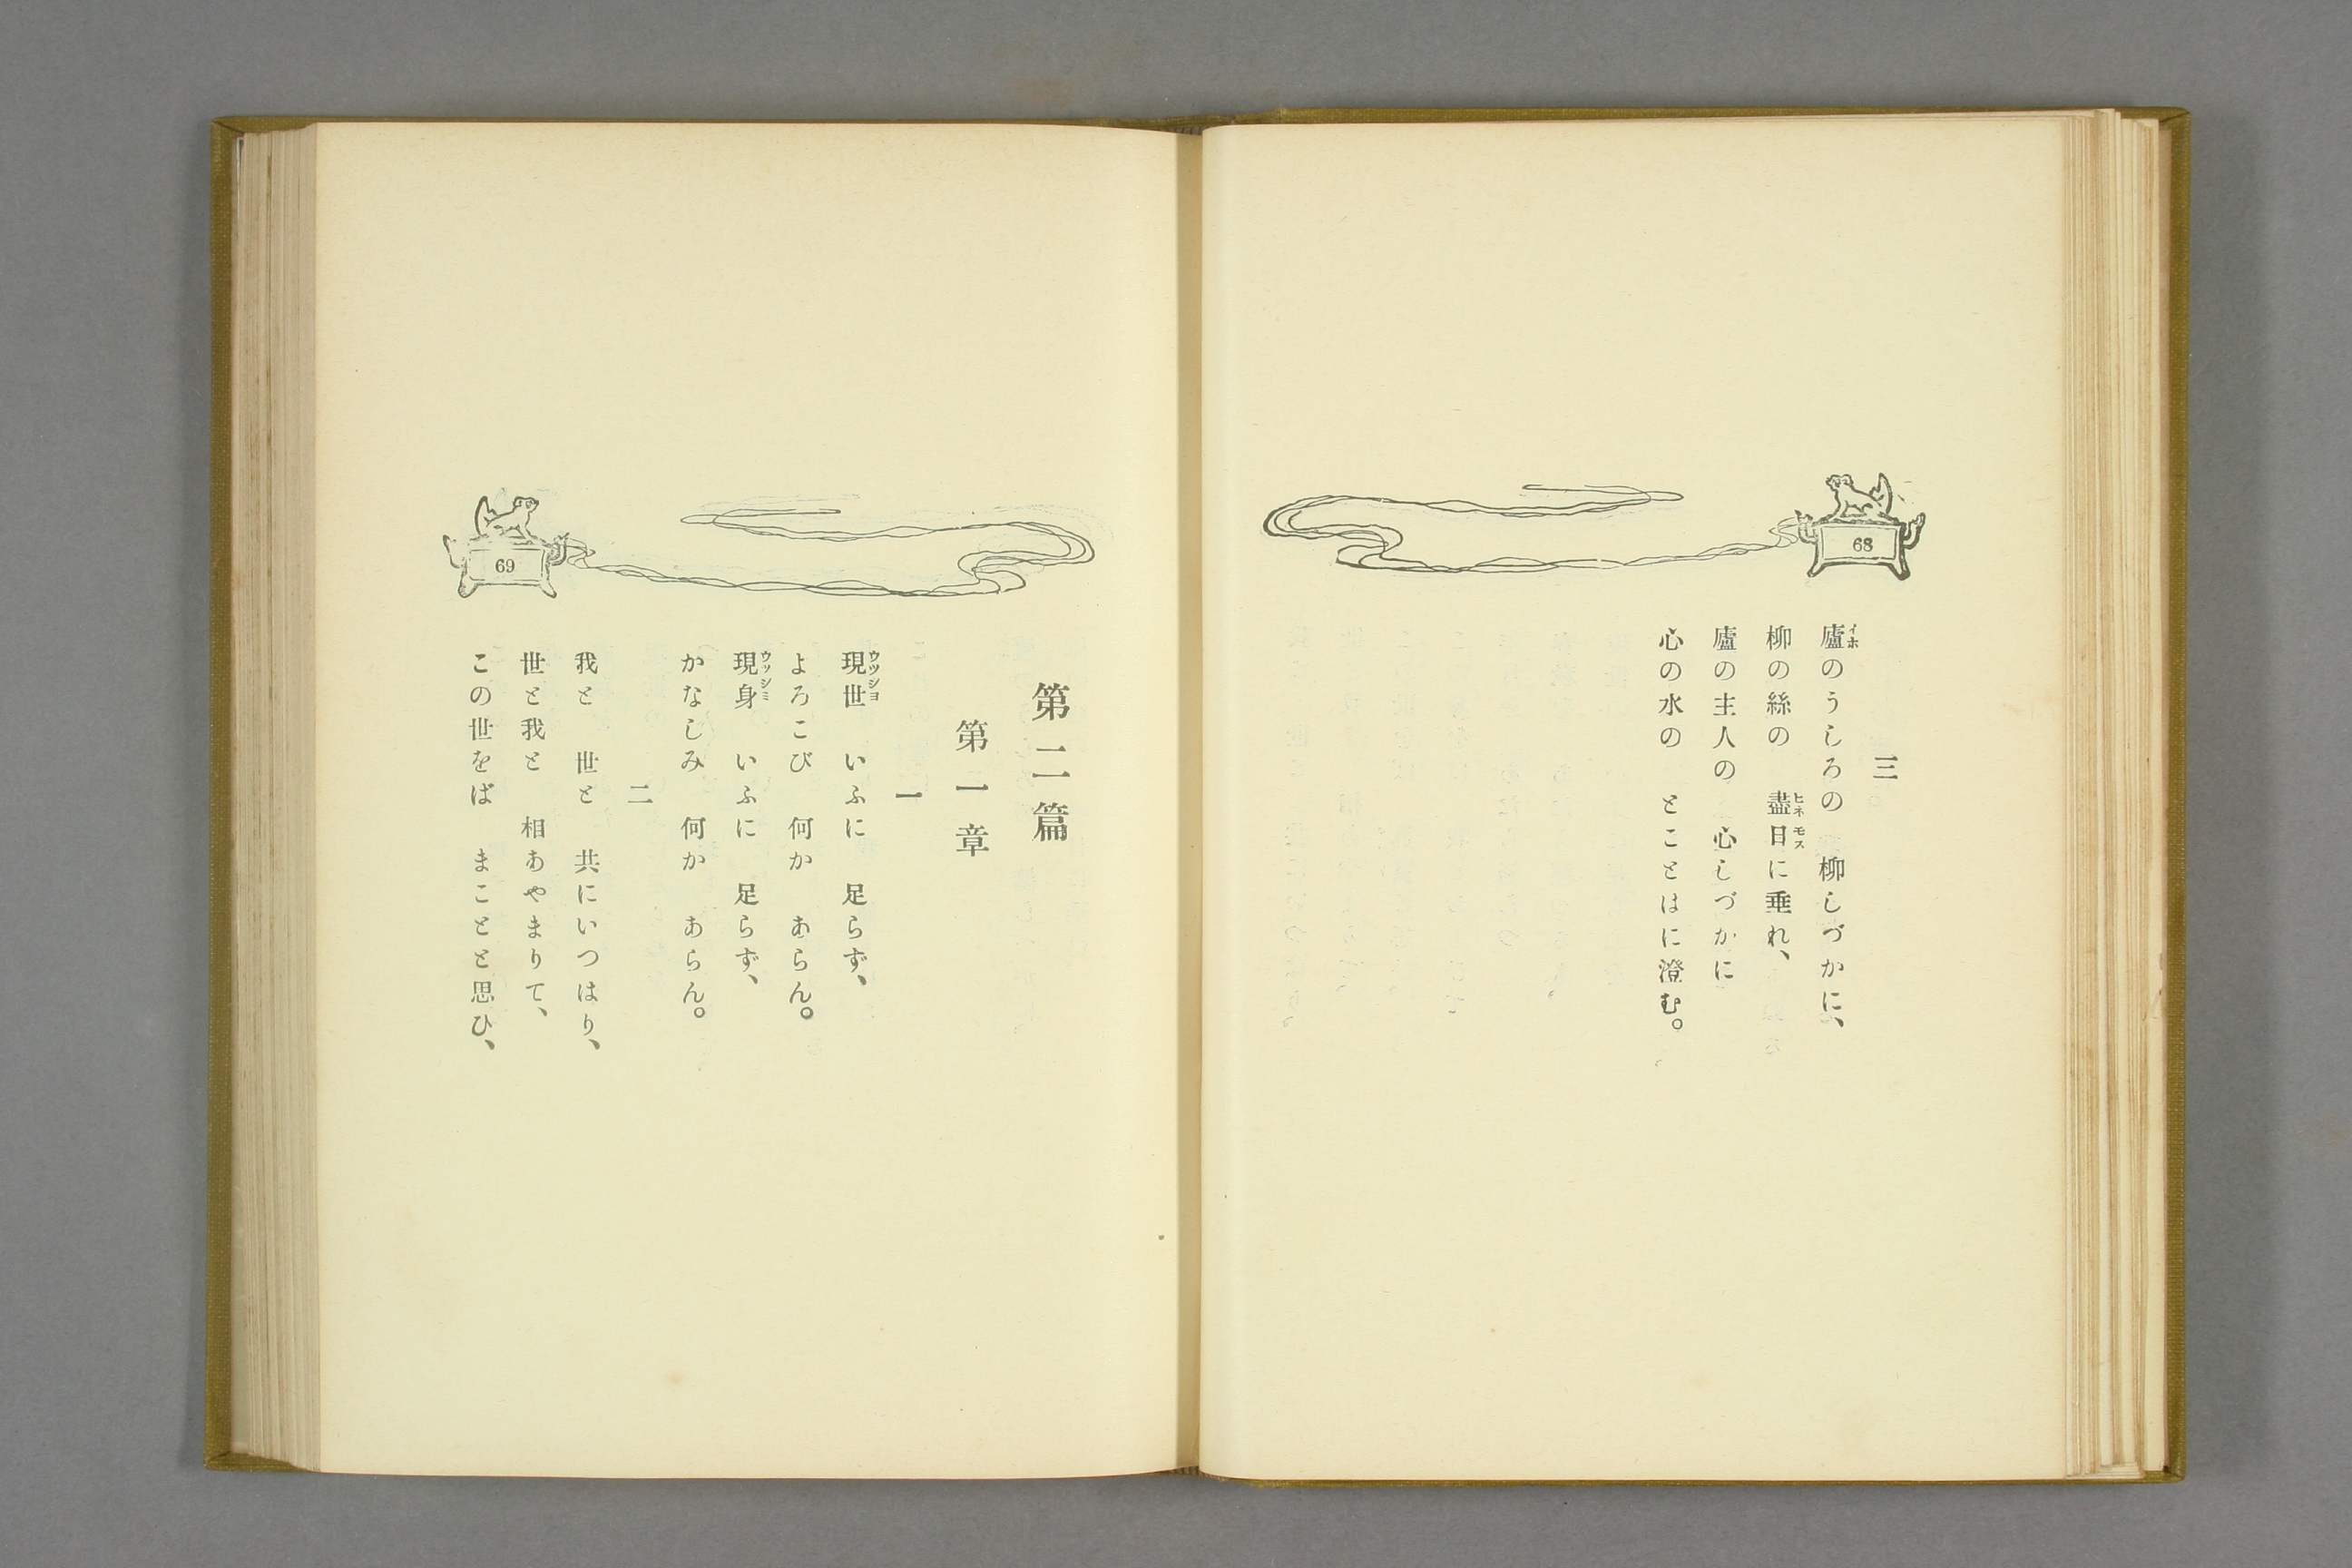 68
三
廬のうしろの　柳しづかに、
柳の絲の　盡日に垂れ、
廬の主人の　心しづかに
心の水の　とことはに澄む。
69
第二篇
第一章
一
現世　いふに　足らず、
よろこび　何か　あらん。
現身　いふに　足らず、
かなしみ　何か　あらん。
二
我と　世と　共にいつはり、
世と我と　相あやまりて、
この世をば　まことと思ひ、
イホ
ヒネモス
ウツシヨ
ウツシミ